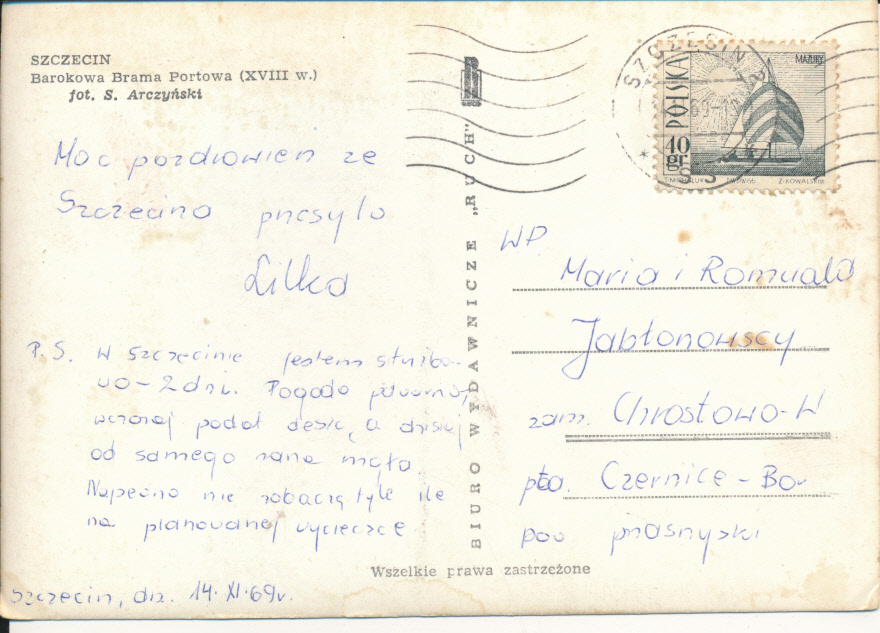 SZCZECIN
Barokowa Brama Portowa (XVIII w.)
fot. S. Arczyński
Moc pozdrowień ze
Szczecina przesyła
Lilka
P.S. W Szczecinie jestem służbo-
wo - 2 dni. Pogoda
wczoraj padał deszcz, a dzisiaj
od samego rana mgła.
Napewno nie zobaczę tyle ile
na planowanej wycieczce
Szczecin, dn. 14.XI.69r.
BIURO WYDAWNICZE „RUCH"
Wszelkie prawa zastrzeżone
SZCZECIN 2
POLSKA
MAZURY
40
gr
PWPW 66
Z. KOWALSKI
WP
Maria i Romuald
Jabłonowscy
zam. Chrostowo-W
pta. Czernice - Bor
pow przasnyski